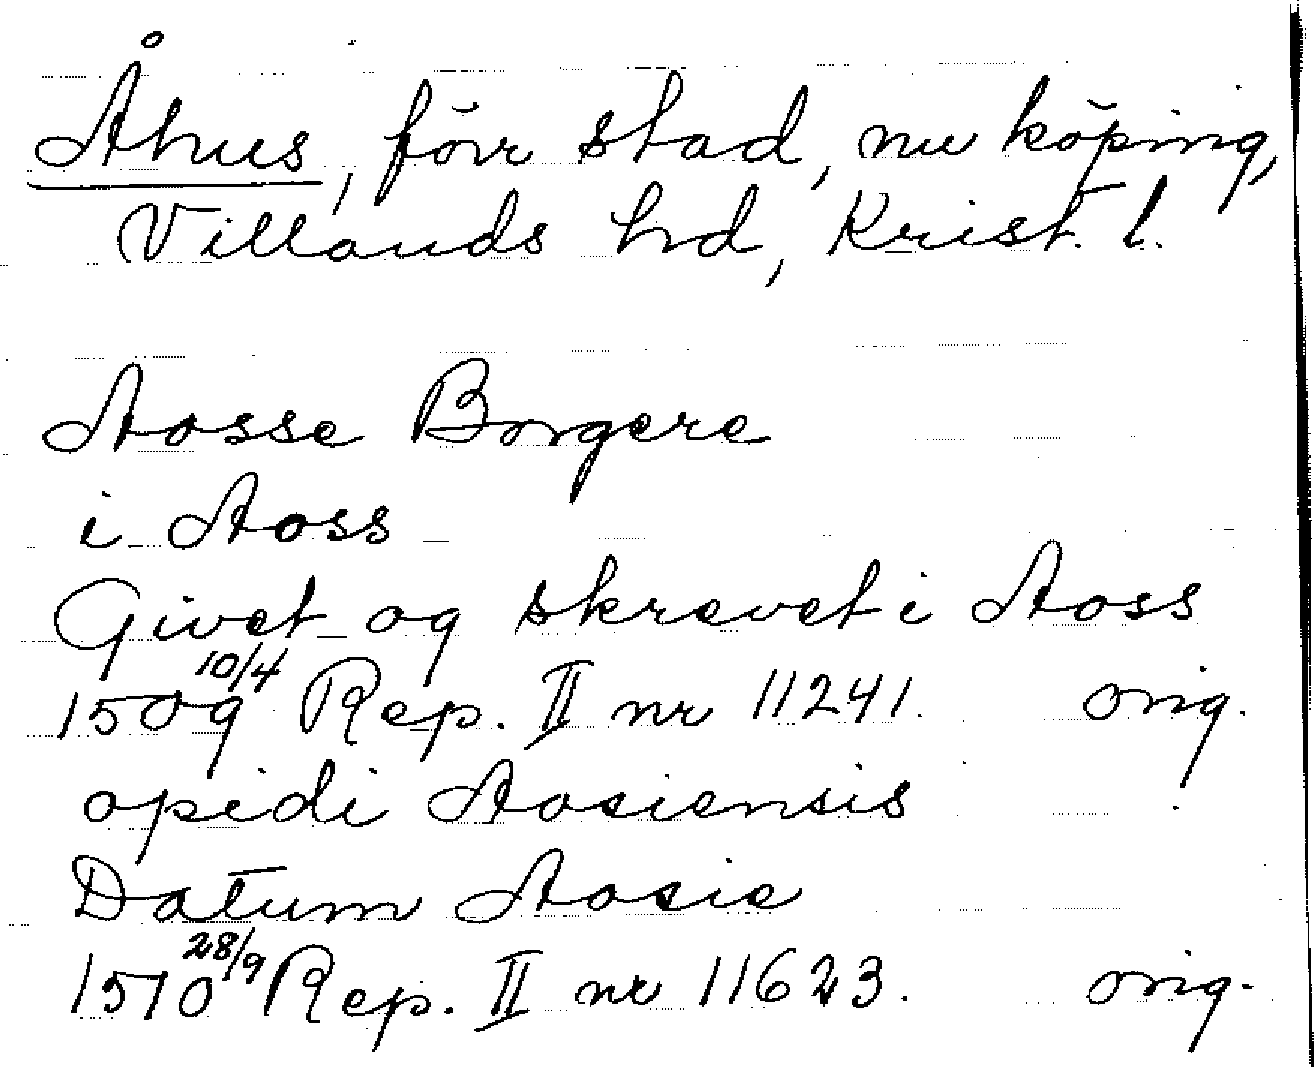 Åhus, förr stad, nu köping,
Villands hd, Krist. l.
Aosse Borgere
i Aoss
Givet og skrevet i Aoss
1509 10/4 Rep. II nr 11241. orig.
opidi Aosiensis
Datum Aosie
1510 28/9 Rep. II nr 11623. orig.